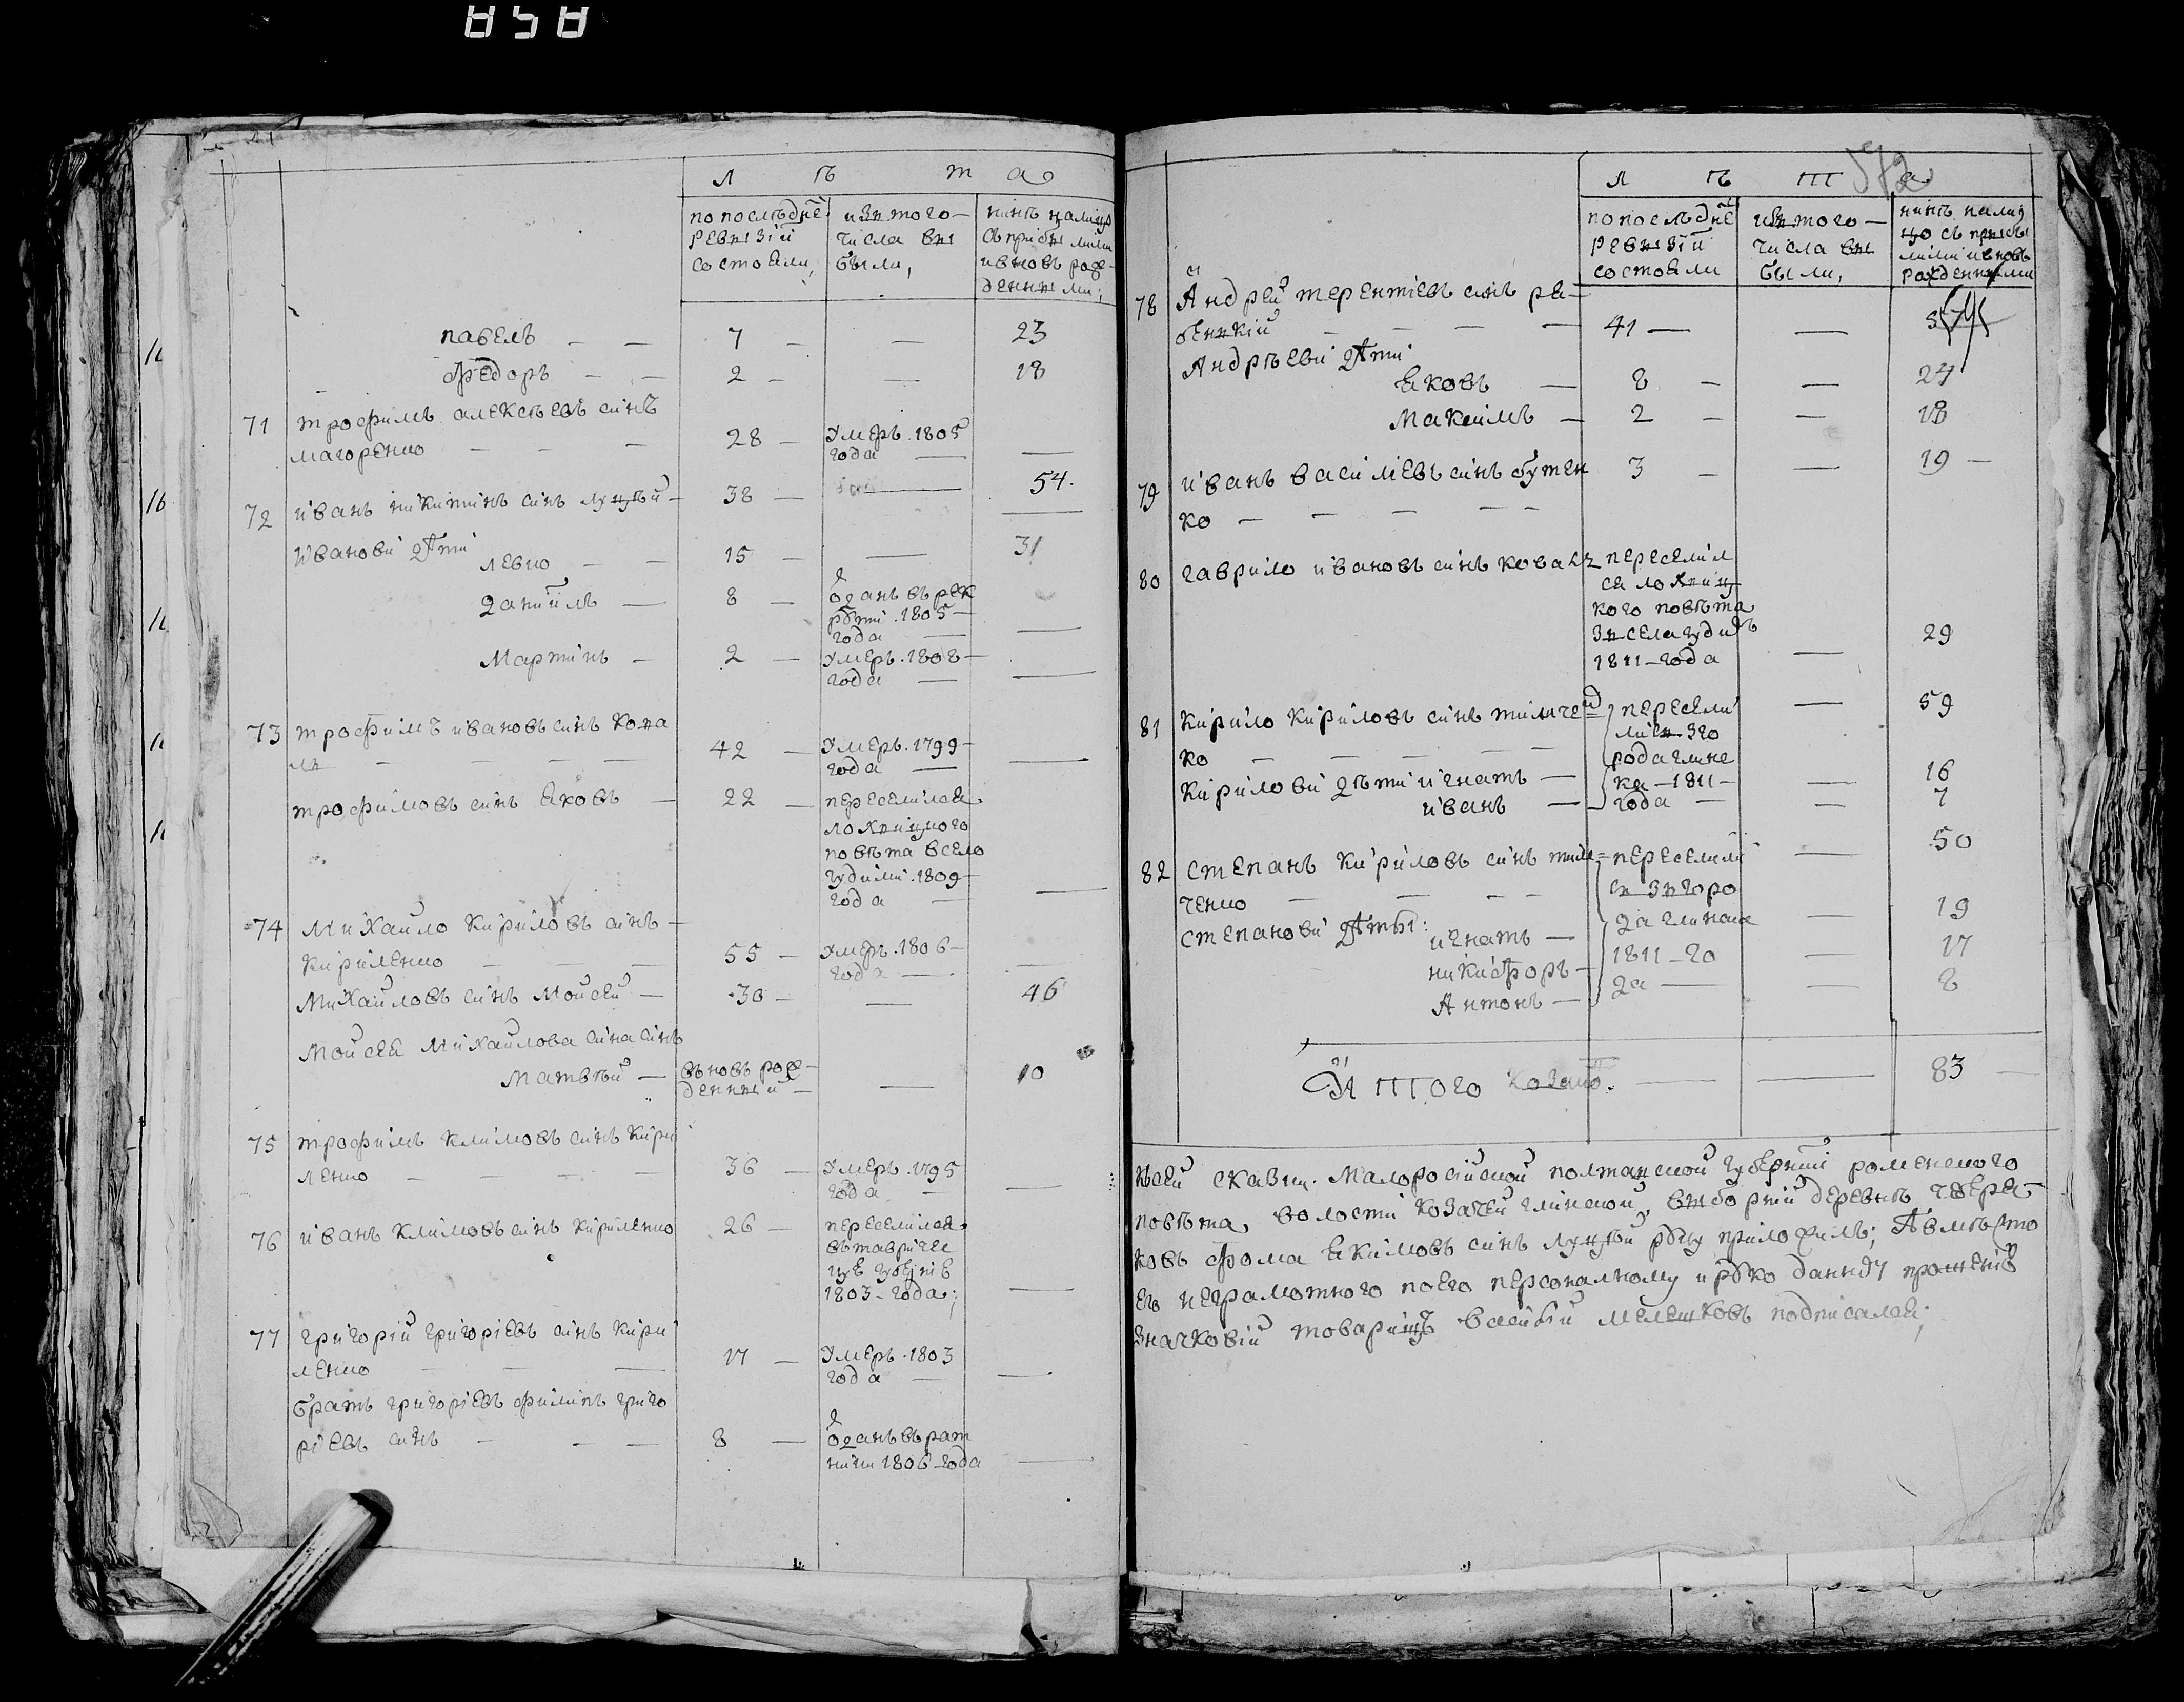 858
Л ѣ т а
по последней изъ того нинѣ налицо
ревизіи числа вы съ прибылими
состояли, были, и вновь рож
денными;
павелъ — — 7 — — 23
федоръ — — 2 — — 18
71 трофимъ алексѣевъ синъ
магоренко — — — 28 — умеръ 1805
года — —
72 иванъ никитинъ синъ луцѣй — 38 — — 54.
Иванови дѣти
левко — — 15 — — 31
даниилъ — 8 — оданъ въ рек
рути 1805
года — —
Мартинъ — 2 — умеръ 1808
года — —
73 трофимъ ивановъ синъ кова
ль — — — 42 — умеръ 1799
года — —
трофимовъ синъ Яковъ — 22 — переселился
лохвицкого
повѣта в село
гудими 1809
года — —
74 Михайло Кириловъ синъ —
Кириленко — — — 55 — умеръ 1806
года — —
Михайловъ синъ Мойсей — 30 — — 46
Мойсея Михайлова сина синъ
Матвѣй — въновь рож
денный — — 10
75 трофимъ климовъ синъ Кири
ленко — — — 36 — умеръ 1795
года — —
76 иванъ климовъ синъ Кириленко 26 — переселился
въ тавричес
1803 года; —
77 григорій григоріевъ синъ Кири
ленко — — 17 — умеръ 1803
года — —
братъ григоріевъ филипъ григо
ріевъ синъ — — — 8 — оданъ въ рат
ники 1806 года —
572
Л ѣ т а
по последней изъ того нинѣ налиц
ревизіи числа вы цо съ прибы
состояли были, лими и вновь
рожденными
78 Андрей терентіевъ синъ ре
бенкій — — — — 41 — — 57
Андрѣеви дѣти
Яковъ — 8 — — 24
Максимъ — 2 — — 18
79 иванъ василіевъ синъ бутен 3 — — 19 —
ко — — — — —
80 гаврило ивановъ синъ коваль переселил
ся лохвиц
кого повѣта
зъ села гудимъ 29
1811 года —
81 Кирило Кириловъ синъ тимчен переселили — 59
ко — — — — ся зъ го
рода глинс
Кирилови дѣти игнатъ — ка 1811 — 16
иванъ — года — — 7
82 Степанъ Кириловъ синъ тим переселили — 50
ченко — — — — ся зъ горо
Степанови дѣти: игнатъ — да глинска — 19
никифоръ — 1811 го — 17
Антонъ — да — — 8
Итого козаковъ. — — 83 —
Къ сей сказки Малоросійской полтавской губерніи роменского
повѣта, волости козачей глинской, виборній деревнѣ чебере
ковъ фома Якимовъ синъ луцѣй руку приложилъ; А вмѣсто
его неграмотного по его персоналному и руко данному прошенію
значковій товарищъ василій мелешковъ подписался;